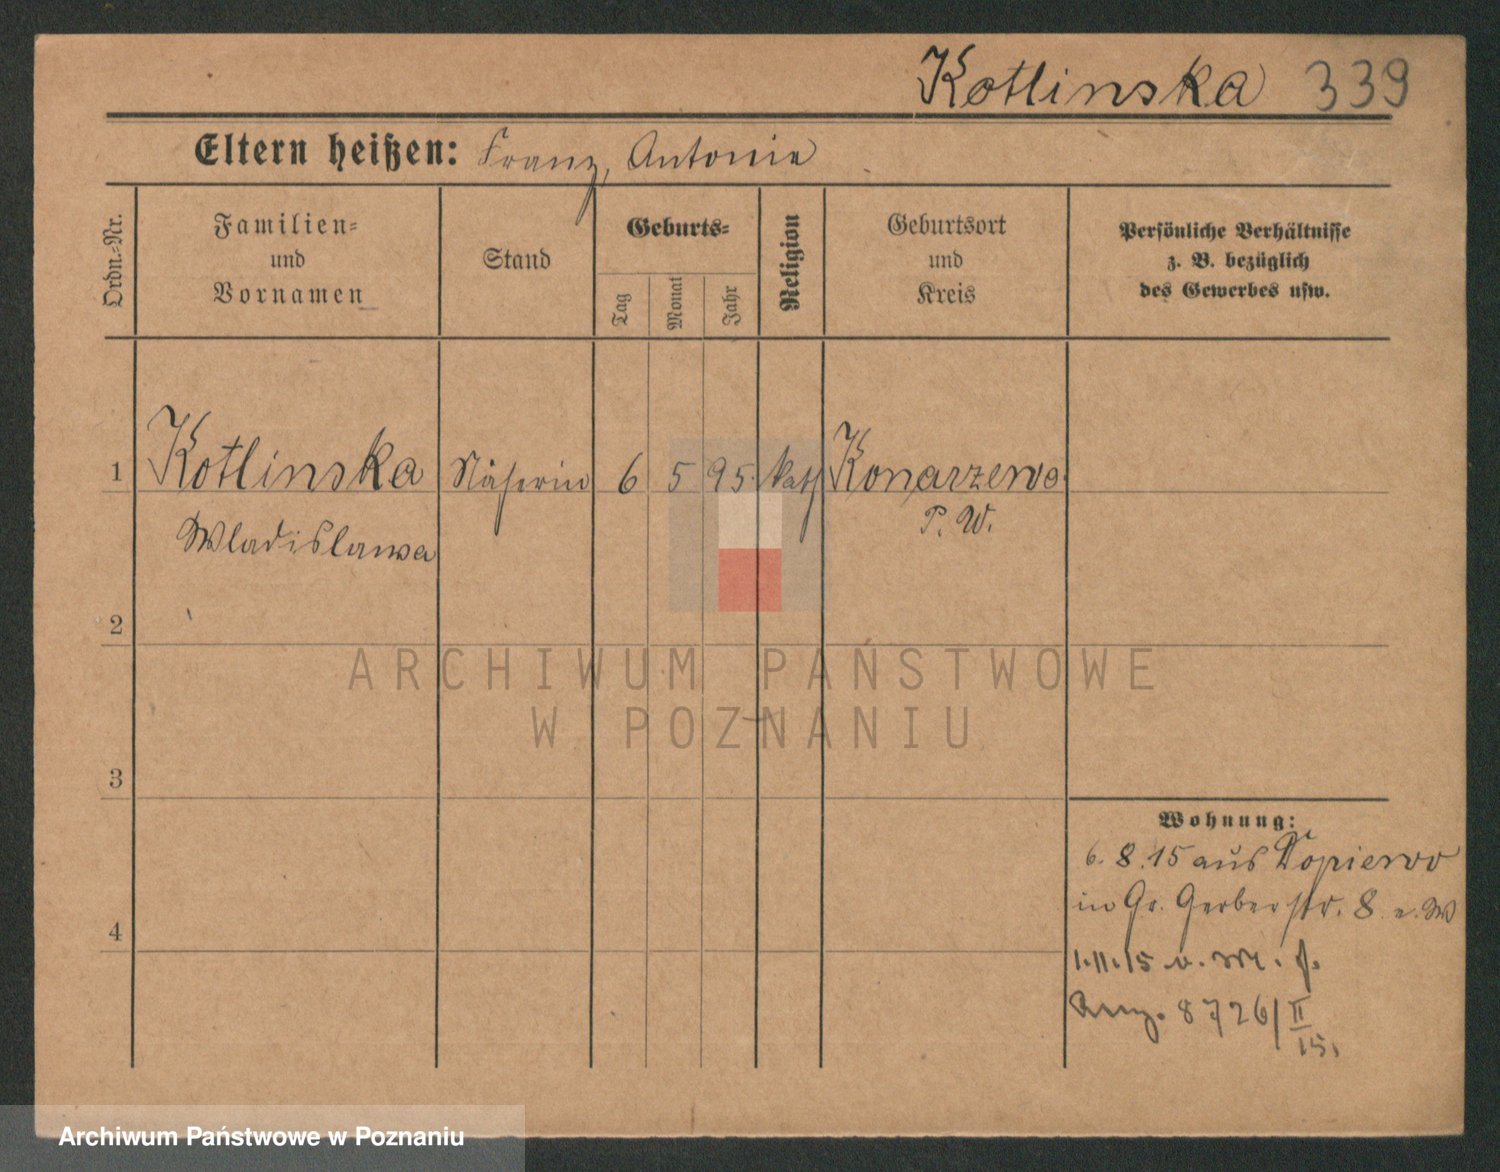 Kotlinska 339
Eltern heißen: Franz, Antonie
Ordn.=Nr.
Familien=
und
Vornamen
Stand
Geburts=
Tag
Monat
Jahr
Religion
Geburtsort
und
Kreis
Persönliche Verhältnisse
z. B. bezüglich
des Gewerbes usw.
1 Kotlinska Näherin 6 5 95. kath Konarzewo
Wladislawa P. W.
2
3
4
Wohnung:
6. 8. 15 aus Dopiewo
in Gr. Gerberstr. 8
1.11.15
8726/II
15.
ARCHIWUM PAŃSTWOWE
W POZNANIU
Archiwum Państwowe w Poznaniu